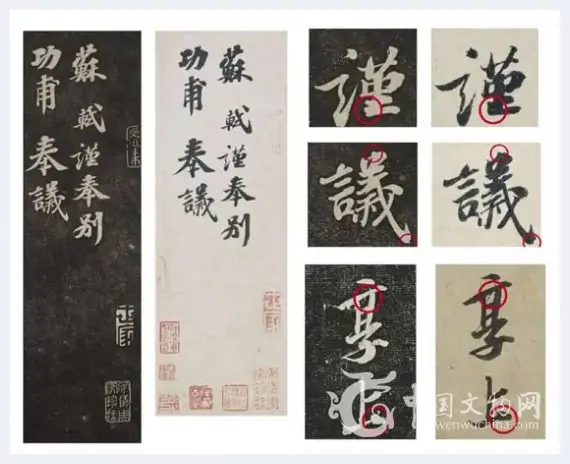 蘇軾謹奉別
功甫奉議
蘇軾謹奉別
功甫奉議
謹
謹
議
議
享上
享上
中国文物网
www.wenwuchina.com